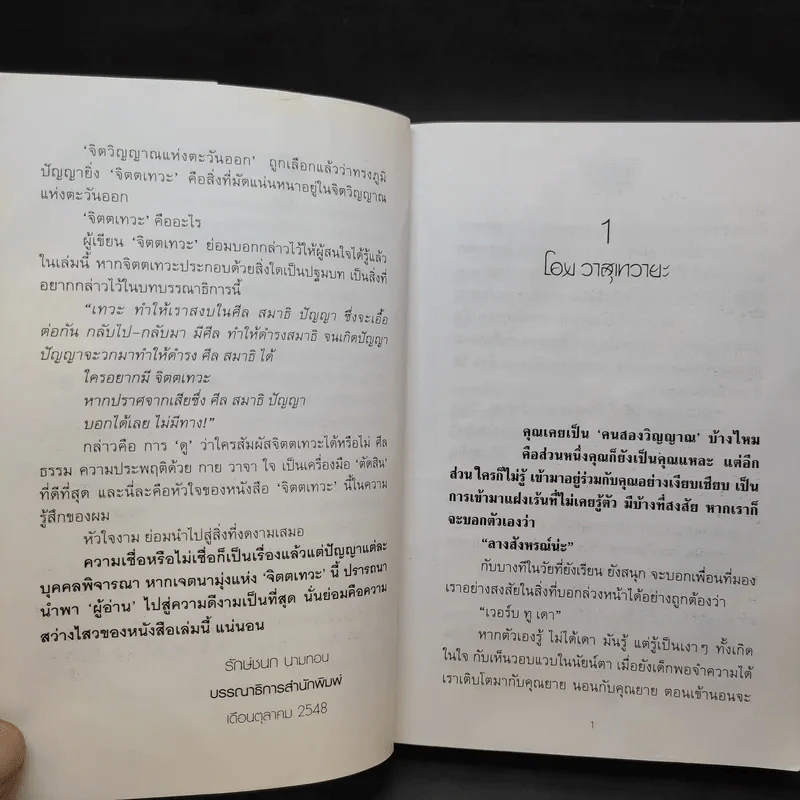 ‘จิตวิญญาณแห่งตะวันออก’ ถูกเลือกแล้วว่าทรงภูมิ
ปัญญายิ่ง ‘จิตตเทวะ’ คือสิ่งที่มัดแน่นหนาอยู่ในจิตวิญญาณ
แห่งตะวันออก
‘จิตตเทวะ’ คืออะไร
ผู้เขียน ‘จิตตเทวะ’ ย่อมบอกกล่าวไว้ให้ผู้สนใจได้รู้แล้ว
ในเล่มนี้ หากจิตตเทวะประกอบด้วยสิ่งใดเป็นปฐมบท เป็นสิ่งที่
อยากกล่าวไว้ในบทบรรณาธิการนี้
“เทวะ ทำให้เราสงบในศีล สมาธิ ปัญญา ซึ่งจะเอื้อ
ต่อกัน กลับไป–กลับมา มีศีล ทำให้ดำรงสมาธิ จนเกิดปัญญา
ปัญญาจะวกมาทำให้ดำรง ศีล สมาธิ ได้
ใครอยากมี จิตตเทวะ
หากปราศจากเสียซึ่ง ศีล สมาธิ ปัญญา
บอกได้เลย ไม่มีทาง!”
กล่าวคือ การ ‘ดู’ ว่าใครสัมผัสจิตตเทวะได้หรือไม่ ศีล
ธรรม ความประพฤติด้วย กาย วาจา ใจ เป็นเครื่องมือ ‘ตัดสิน’
ที่ดีที่สุด และนี่ละคือหัวใจของหนังสือ ‘จิตตเทวะ’ นี้ในความ
รู้สึกของผม
หัวใจงาม ย่อมนำไปสู่สิ่งที่งดงามเสมอ
ความเชื่อหรือไม่เชื่อก็เป็นเรื่องแล้วแต่ปัญญาแต่ละ
บุคคลพิจารณา หากเจตนามุ่งแห่ง ‘จิตตเทวะ’ นี้ ปรารถนา
นำพา ‘ผู้อ่าน’ ไปสู่ความดีงามเป็นที่สุด นั่นย่อมคือความ
สว่างไสวของหนังสือเล่มนี้ แน่นอน
รักษ์ชนก นามทอน
บรรณาธิการสำนักพิมพ์
เดือนตุลาคม 2548
1
โอม วาสุเทวายะ
คุณเคยเป็น ‘คนสองวิญญาณ’ บ้างไหม
คือส่วนหนึ่งคุณก็ยังเป็นคุณแหละ แต่อีก
ส่วนใครก็ไม่รู้ เข้ามาอยู่ร่วมกับคุณอย่างเงียบเชียบ เป็น
การเข้ามาแฝงเร้นที่ไม่เคยรู้ตัว มีบ้างที่สงสัย หากเราก็
จะบอกตัวเองว่า
“ลางสังหรณ์น่ะ”
กับบางทีในวัยที่ยังเรียน ยังสนุก จะบอกเพื่อนที่มอง
เราอย่างสงสัยในสิ่งที่บอกล่วงหน้าได้อย่างถูกต้องว่า
“เวอร์บ ทู เดา”
หากตัวเองรู้ ไม่ได้เดา มันรู้ แต่รู้เป็นเงาๆ ทั้งเกิด
ในใจ กับเห็นวอบแวบในนัยน์ตา เมื่อยังเด็กพอจำความได้
เราเติบโตมากับคุณยาย นอนกับคุณยาย ตอนเข้านอนจะ
1